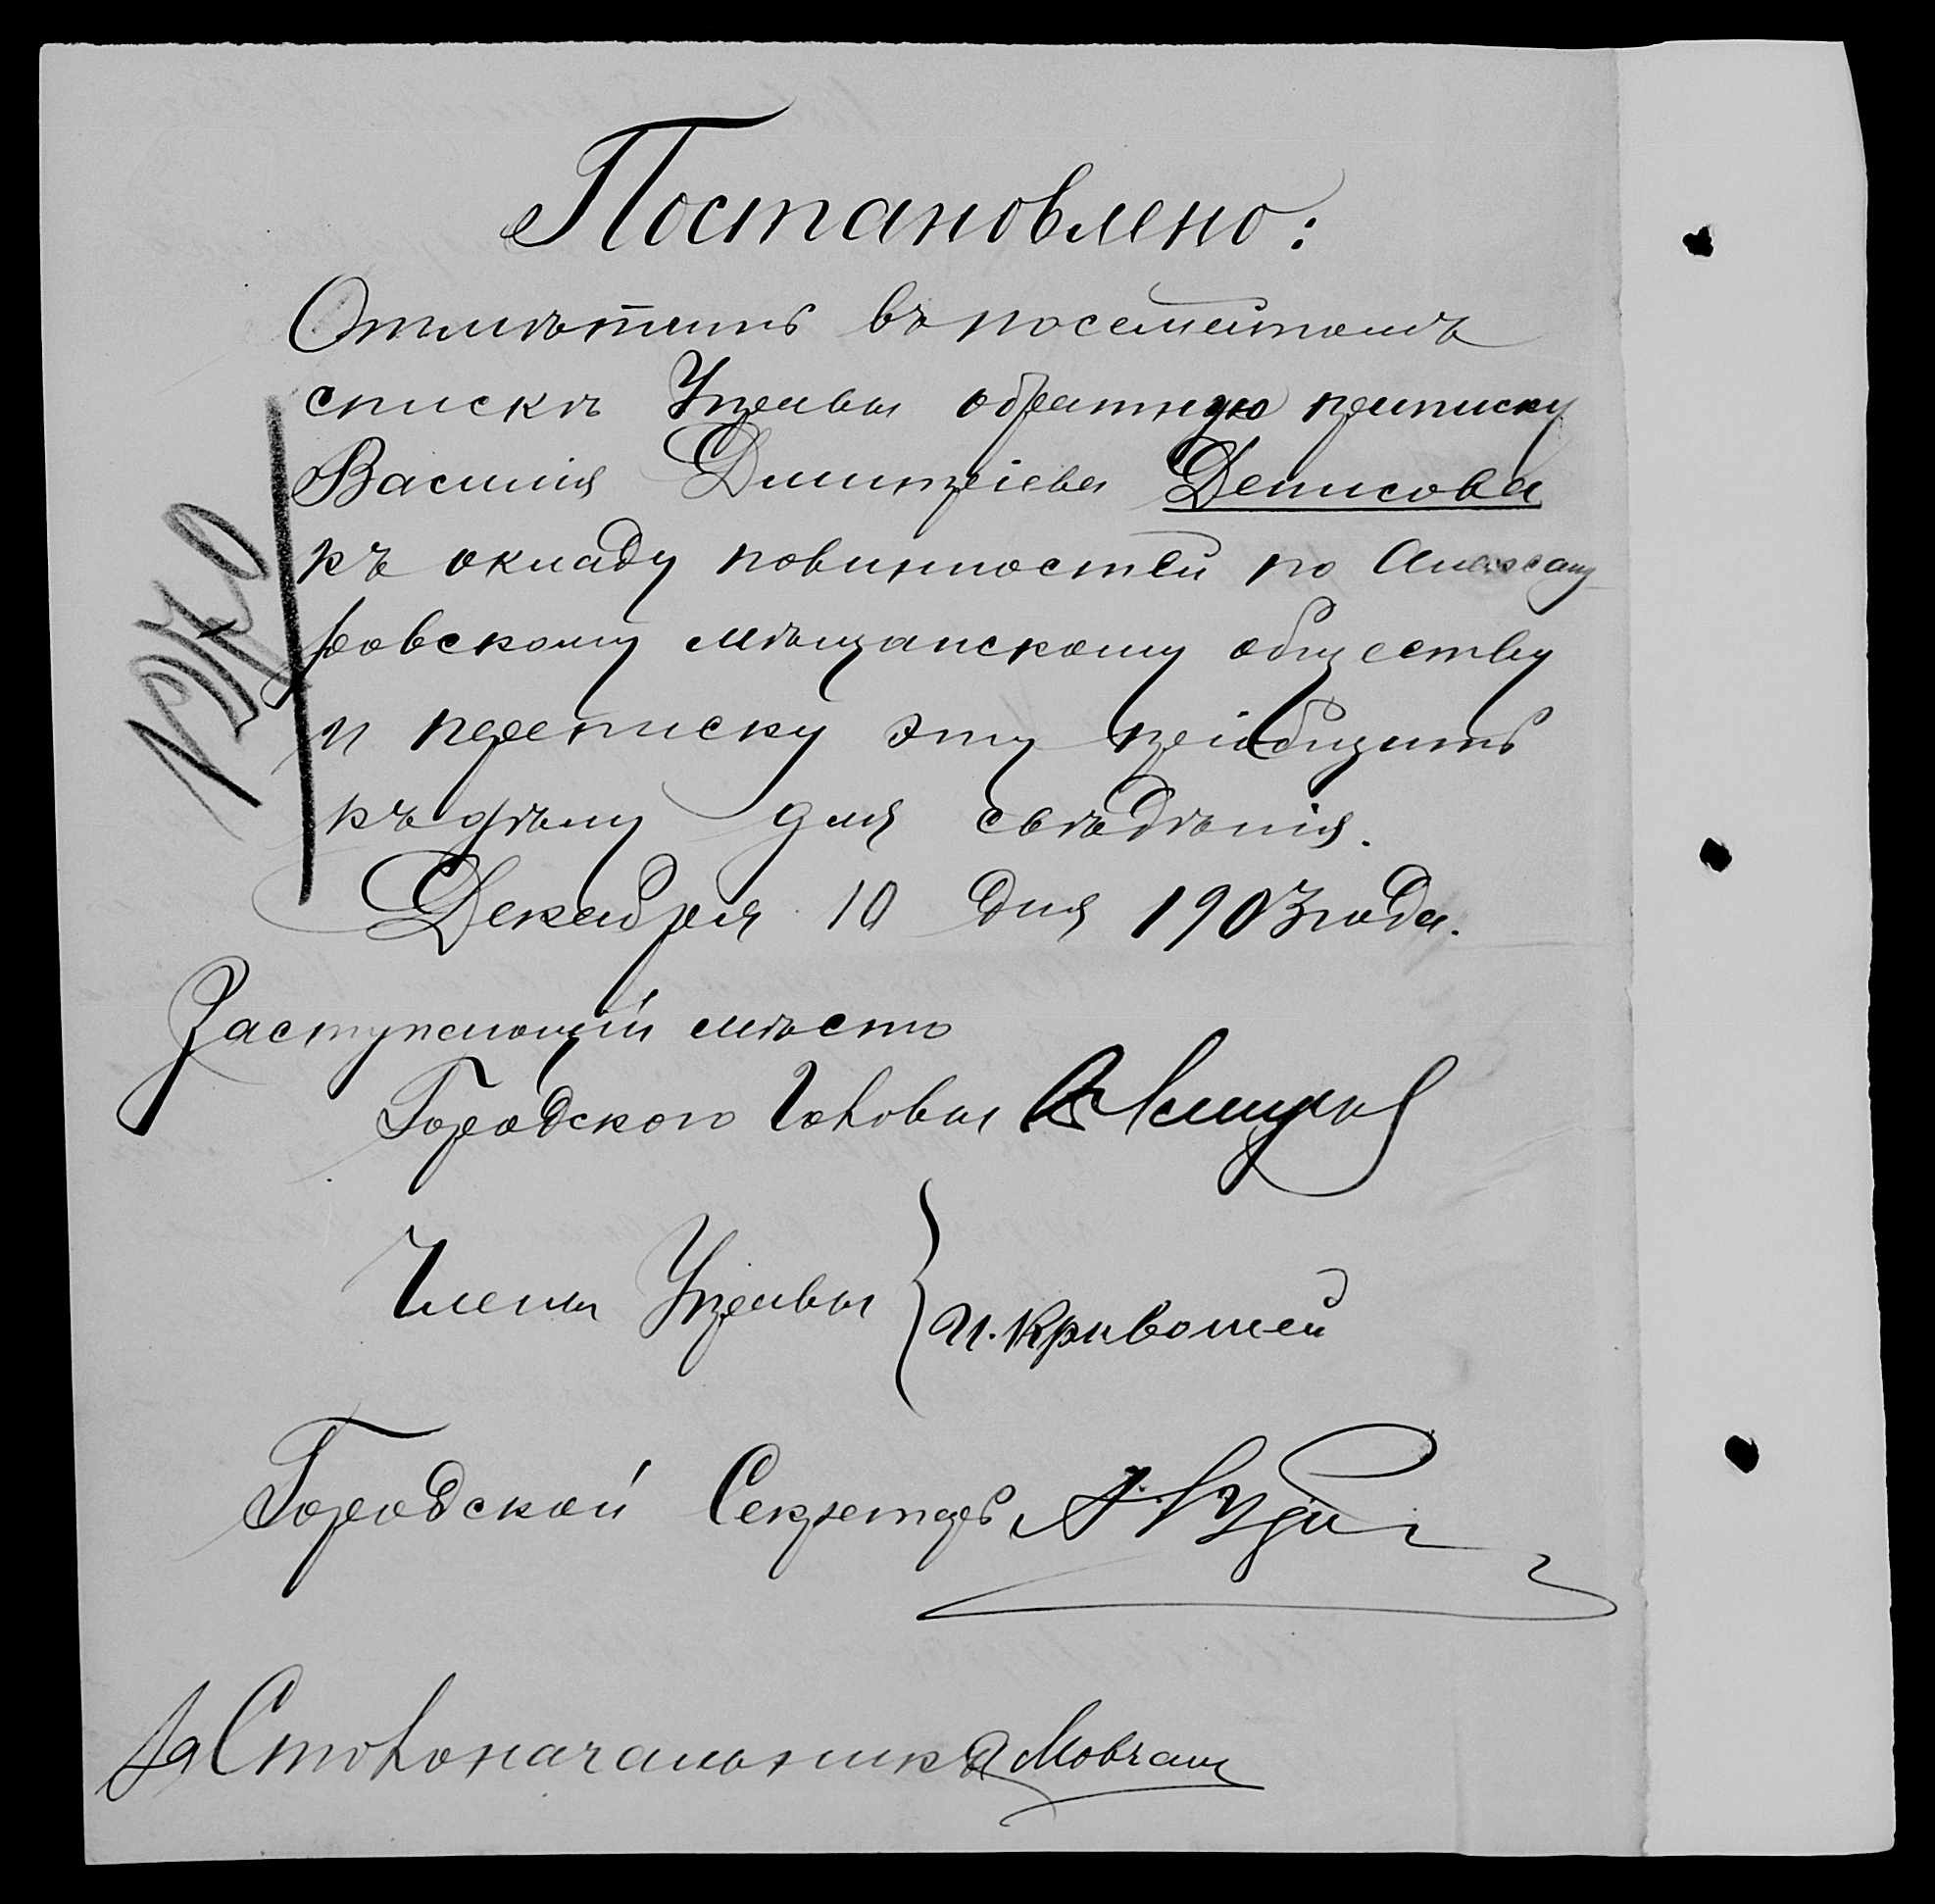 Постановлено:
Отмѣтить въ посемейномъ
спискѣ Управы обратную приписку
Василія Димитріева Денисова
къ окладу повинностей по Александ-
ровскому мѣщанскому обществу
и переписку эту пріобщить
къ дѣлу для свѣдѣнія.
Декабря 10 дня 1903 года.
Заступающій мѣсто
Городского Головы
Члены Управы И. Кривошей
Городской Секретарь А.
За Столоначальника Мовчан